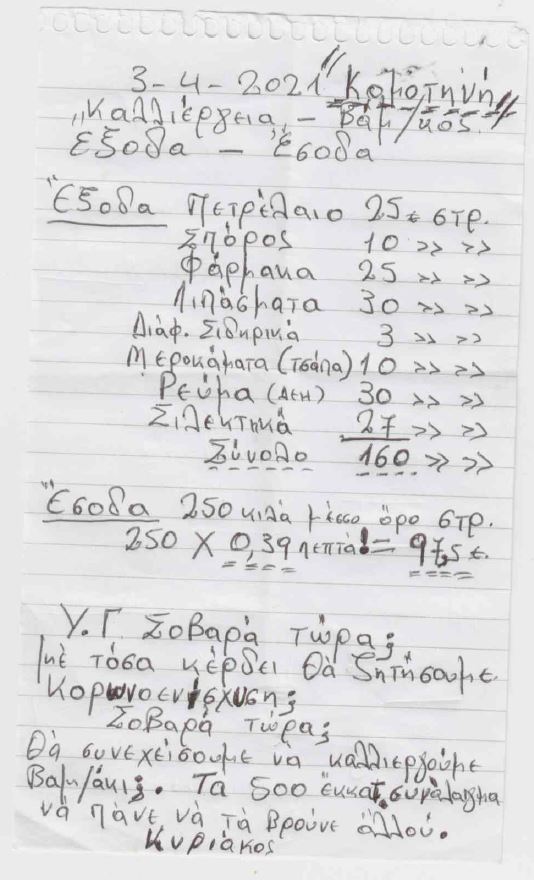 3-4-2021 "Κομοτηνή"
"Καλλιέργεια, - Βαμ/κος.
Εξοδα - Έσοδα
Έξοδα Πετρέλαιο 25€ στρ.
Σπόρος 10 >> >>
Φάρμακα 25 >> >>
Λιπάσματα 30 >> >>
Διάφ. Σιδηρικά 3 >> >>
Μεροκάματα (τσάπα) 10 >> >>
Ρεύμα (ΔΕΗ) 30 >> >>
Σιλεκτηκά 27 >> >>
Σύνολο 160 >> >>
Έσοδα 250 κιλά μέσσο όρο στρ.
250 Χ 0,39 λεπτά! = 97,5 €.
Υ.Γ. Σοβαρά τώρα;
μέ τόσα κέρδει θά ζητήσουμε
Κορωνοενίσχυση;
Σοβαρά τώρα;
Θά συνεχείσουμε να καλλιεργούμε
Βαμ/άκι;. Τα 500 έκκατ. συνάλαγμα
νά πάνε νά τά βρούνε άλλού.
Κυριάκος